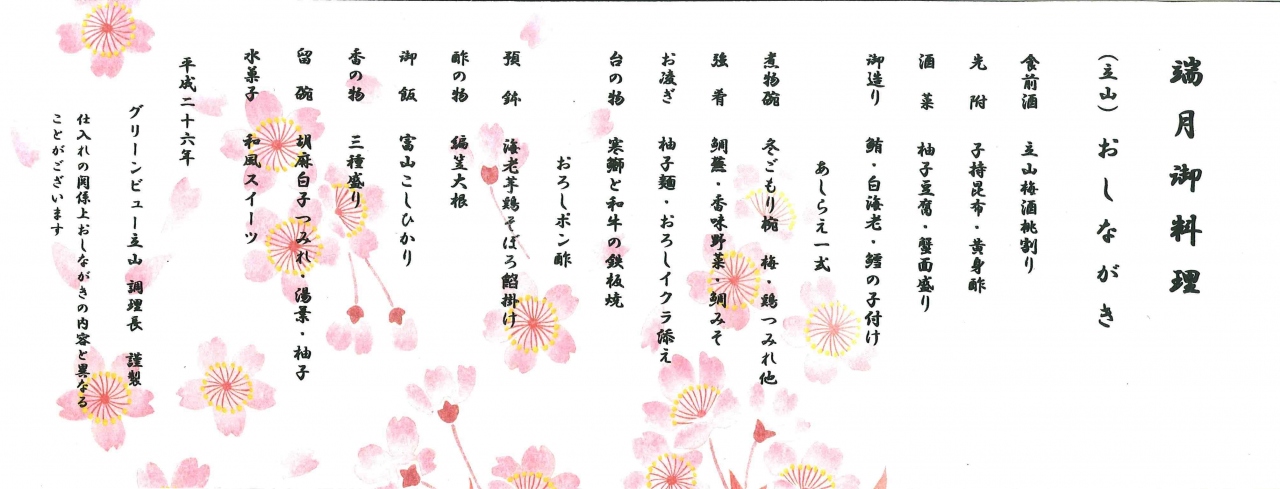 端月御料理
(立山) おしながき
食前酒 立山梅酒桃割り
先附 子持昆布・黄身酢
酒菜 柚子豆腐・蟹面盛り
御造り 鮪・白海老・鱈の子付け
あしらえ一式
煮物碗 冬ごもり椀 梅・鶏つみれ他
強肴 鯛蕪・香味野菜・鯛みそ
お凌ぎ 柚子麺・おろしイクラ添え
台の物 寒鰤と和牛の鉄板焼
おろしポン酢
預鉢 海老芋鶏そぼろ餡掛け
酢の物 編笠大根
御飯 富山こしひかり
香の物 三種盛り
留碗 胡麻白子つみれ・湯葉・柚子
水菓子 和風スイーツ
平成二十六年
グリーンビュー立山 調理長 謹製
仕入れの関係上おしながきの内容と異なる
ことがございます